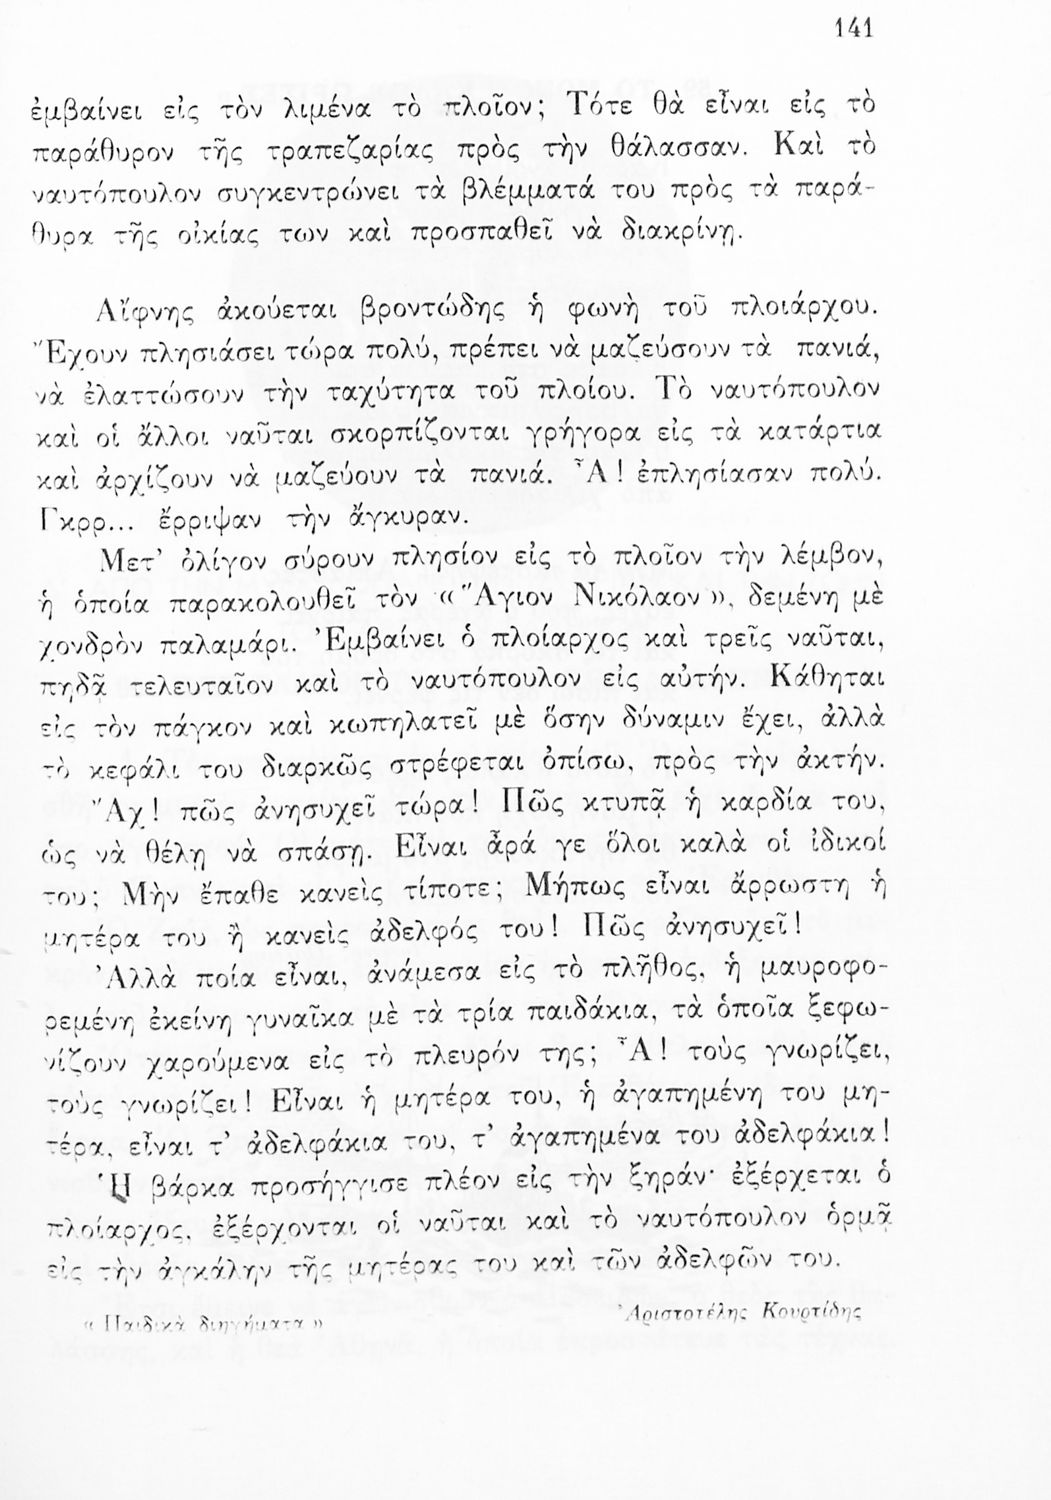 141
ἐμβαίνει εἰς τὸν λιμένα τὸ πλοῖον; Τότε θὰ εἶναι εἰς τὸ
παράθυρον τῆς τραπεζαρίας πρὸς τὴν θάλασσαν. Καὶ τὸ
ναυτόπουλον συγκεντρώνει τὰ βλέμματά του πρὸς τὰ παρά-
θυρα τῆς οἰκίας των καὶ προσπαθεῖ νὰ διακρίνῃ.
Αἴφνης ἀκούεται βροντώδης ἡ φωνὴ τοῦ πλοιάρχου.
Ἔχουν πλησιάσει τώρα πολύ, πρέπει νὰ μαζεύσουν τὰ πανιά,
νὰ ἐλαττώσουν τὴν ταχύτητα τοῦ πλοίου. Τὸ ναυτόπουλον
καὶ οἱ ἄλλοι ναῦται σκορπίζονται γρήγορα εἰς τὰ κατάρτια
καὶ ἀρχίζουν νὰ μαζεύουν τὰ πανιά. Ἆ! ἐπλησίασαν πολύ.
Γκρρ... ἔρριψαν τὴν ἄγκυραν.
Μετ’ ὀλίγον σύρουν πλησίον εἰς τὸ πλοῖον τὴν λέμβον,
ἡ ὁποία παρακολουθεῖ τὸν «Ἅγιον Νικόλαον», δεμένη μὲ
χονδρὸν παλαμάρι. Ἐμβαίνει ὁ πλοίαρχος καὶ τρεῖς ναῦται,
πηδᾷ τελευταῖον καὶ τὸ ναυτόπουλον εἰς αὐτήν. Κάθηται
εἰς τὸν πάγκον καὶ κωπηλατεῖ μὲ ὅσην δύναμιν ἔχει, ἀλλὰ
τὸ κεφάλι του διαρκῶς στρέφεται ὀπίσω, πρὸς τὴν ἀκτήν.
Ἄχ! πῶς ἀνησυχεῖ τώρα! Πῶς κτυπᾷ ἡ καρδία του,
ὡς νὰ θέλῃ νὰ σπάσῃ. Εἶναι ἆρά γε ὅλοι καλὰ οἱ ἰδικοί
του; Μὴν ἔπαθε κανεὶς τίποτε; Μήπως εἶναι ἄρρωστη ἡ
μητέρα του ἢ κανεὶς ἀδελφός του! Πῶς ἀνησυχεῖ!
Ἀλλὰ ποία εἶναι, ἀνάμεσα εἰς τὸ πλῆθος, ἡ μαυροφο-
ρεμένη ἐκείνη γυναῖκα μὲ τὰ τρία παιδάκια, τὰ ὁποῖα ξεφω-
νίζουν χαρούμενα εἰς τὸ πλευρόν της; Ἆ! τοὺς γνωρίζει,
τοὺς γνωρίζει! Εἶναι ἡ μητέρα του, ἡ ἀγαπημένη του μη-
τέρα, εἶναι τ’ ἀδελφάκια του, τ’ ἀγαπημένα του ἀδελφάκια!
Ἡ βάρκα προσήγγισε πλέον εἰς τὴν ξηράν· ἐξέρχεται ὁ
πλοίαρχος, ἐξέρχονται οἱ ναῦται καὶ τὸ ναυτόπουλον ὁρμᾷ
εἰς τὴν ἀγκάλην τῆς μητέρας του καὶ τῶν ἀδελφῶν του.
«Παιδικὰ διηγήματα» Ἀριστοτέλης Κουρτίδης